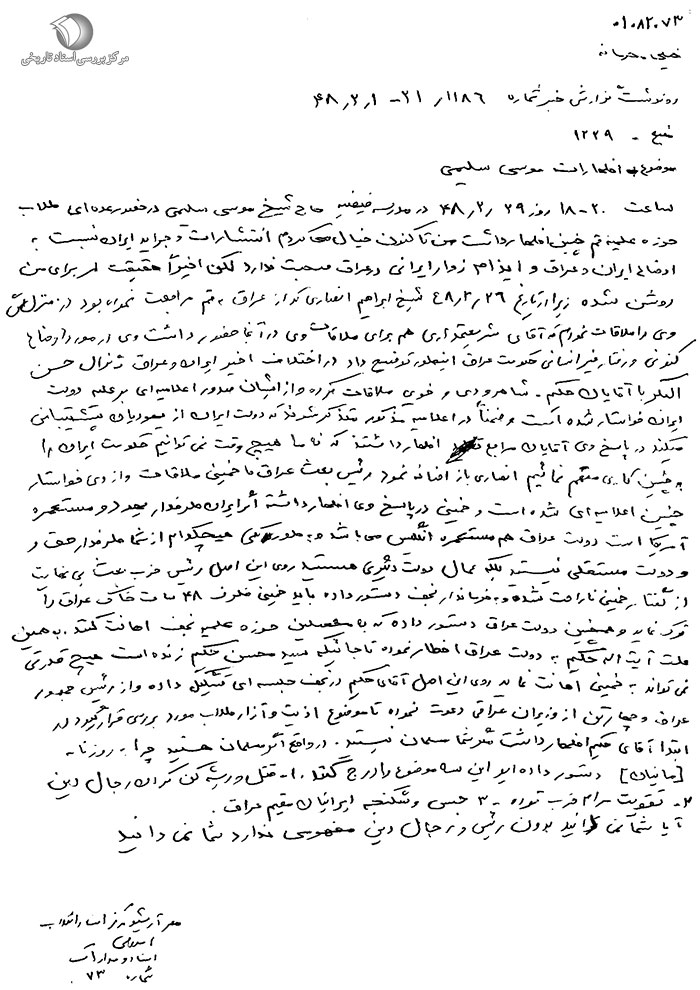 مرکز بررسی اسناد تاریخی
۰۱۰۸۲۰۷۳
خیلی محرمانه
رونوشت گزارش خبر شماره ۱۱۸۶/ ۲۱ - ۴۸٫۳٫۱
منبع - ۱۲۲۹
موضوع اظهارات موسی سلیمی
ساعت ۱۸۰۲۰ روز ۴۸٫۲٫۲۹ در مدرسه فیضیه حاج شیخ موسی سلیمی در حضور عده‌ای طلاب
حوزه علمیه قم چنین اظهار داشت من تاکنون خیال میکردم انتشارات و جراید ایران نسبت به
اوضاع ایران و عراق و ایذاء زوار ایرانی در عراق صحت ندارد لکن اخیراً حقیقت امر برای من
روشن شده زیرا از تاریخ ۴۸٫۲٫۲۶ شیخ ابراهیم انصاری که از عراق به قم مراجعت نموده بود در منزلش
وی را ملاقات نمودم که آقای شریعتمداری هم برای ملاقات وی در آنجا حضور داشت وی در مورد اوضاع
کنونی و رفتار غیر انسانی حکومت عراق اینطور توضیح داد در اختلاف اخیر ایران و عراق ژنرال حسن
البکر با آقایان حکیم - شاهرودی و خوئی ملاقات کرده و از ایشان صدور اعلامیه‌ای بر علیه دولت
ایران خواستار شده است و ضمناً در اعلامیه مذکور متذکر شوند که دولت ایران از یهودیان پشتیبانی
میکند در پاسخ وی آقایان مراجع اظهار داشتند که ما هیچ وقت نمی توانیم حکومت ایران را
به چنین کاری متهم نمائیم انصاری باز اضافه نمود رئیس بعث عراق با خمینی ملاقات و از وی خواستار
چنین اعلامیه‌ای شده است و خمینی در پاسخ وی اظهار داشته اگر ایران طرفدار یهود و مستعمره
آمریکا است دولت عراق هم مستعمره انگلیس می باشد و بطور کلی هیچکدام از شما طرفدار حق و
و دولت مستقلی نیستید بلکه عمال دولت دیگری هستید روی این اصل رئیس حزب بعث بی نهایت
از گفتار خمینی ناراحت شده و به فرماندار نجف دستور داده باید خمینی ظرف ۴۸ ساعت خاک عراق را
ترک نماید و همچنین دولت عراق دستور داده که به محصلین حوزه علمیه نجف اهانت کنند. به همین
علت آیت اله حکیم به دولت عراق اخطار نموده تا جائیکه سید محسن حکیم زنده است هیچ قدرتی
نمی تواند به خمینی اهانت نماید روی این اصل آقای حکیم در نجف جلسه ای تشکیل داده و از رئیس جمهور
عراق و چهار تن از وزیران عراقی دعوت نموده تا موضوع اذیت و آزار طلاب مورد بررسی قرار گیرد در
ابتدا آقای حکیم اظهار داشت مگر شما مسلمان نیستید. در واقع اگر مسلمان هستید چرا به روزنامه
دستور داده اید این سه موضوع را درج کنند. ۱- قتل و ریشه کن کردن رجال دین
۲- تقویت مرام حزب توده - ۳ حبس و شکنجه ایرانیان مقیم عراق.
آیا شما نمی دانید بدون رئیس و رجال دین مفهومی ندارد شما نمی دانید
مهر آرشیو مرکز اسناد انقلاب
اسلامی
اسناد و مدارک
شماره ۷۳